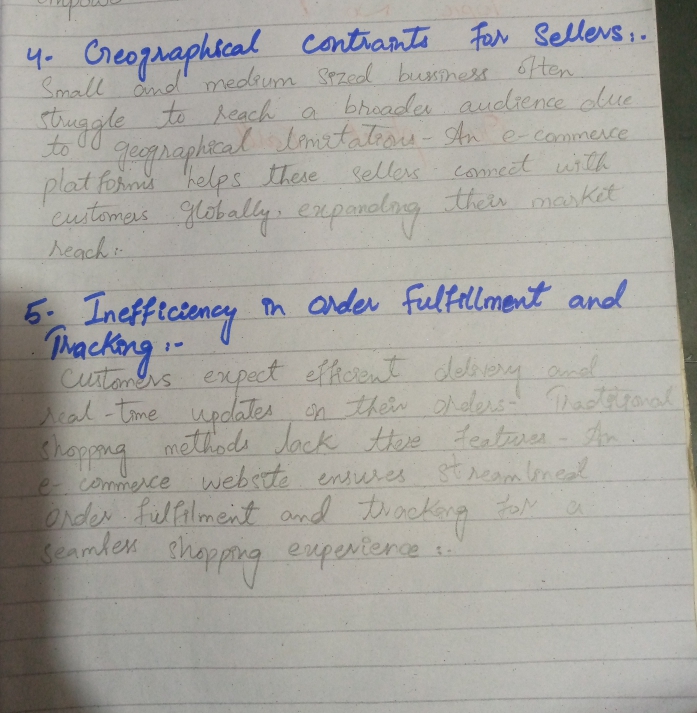 empowe
4- Geographical contraints for Sellers:-
Small and medium sized bussiness often
struggle to reach a broader audience due
to geographical limitations- An e-commerce
platforms helps these sellers connect with
customers globally, expanding their market
reach:-
5- Inefficiency in order fulfillment and
Tracking:-
Customers expect efficient delivery and
real-time updates on their orders- Traditional
shopping methods lack these features- An
e-commerce website ensures streamlined
order fulfilment and tracking for a
seamless shopping experience:-